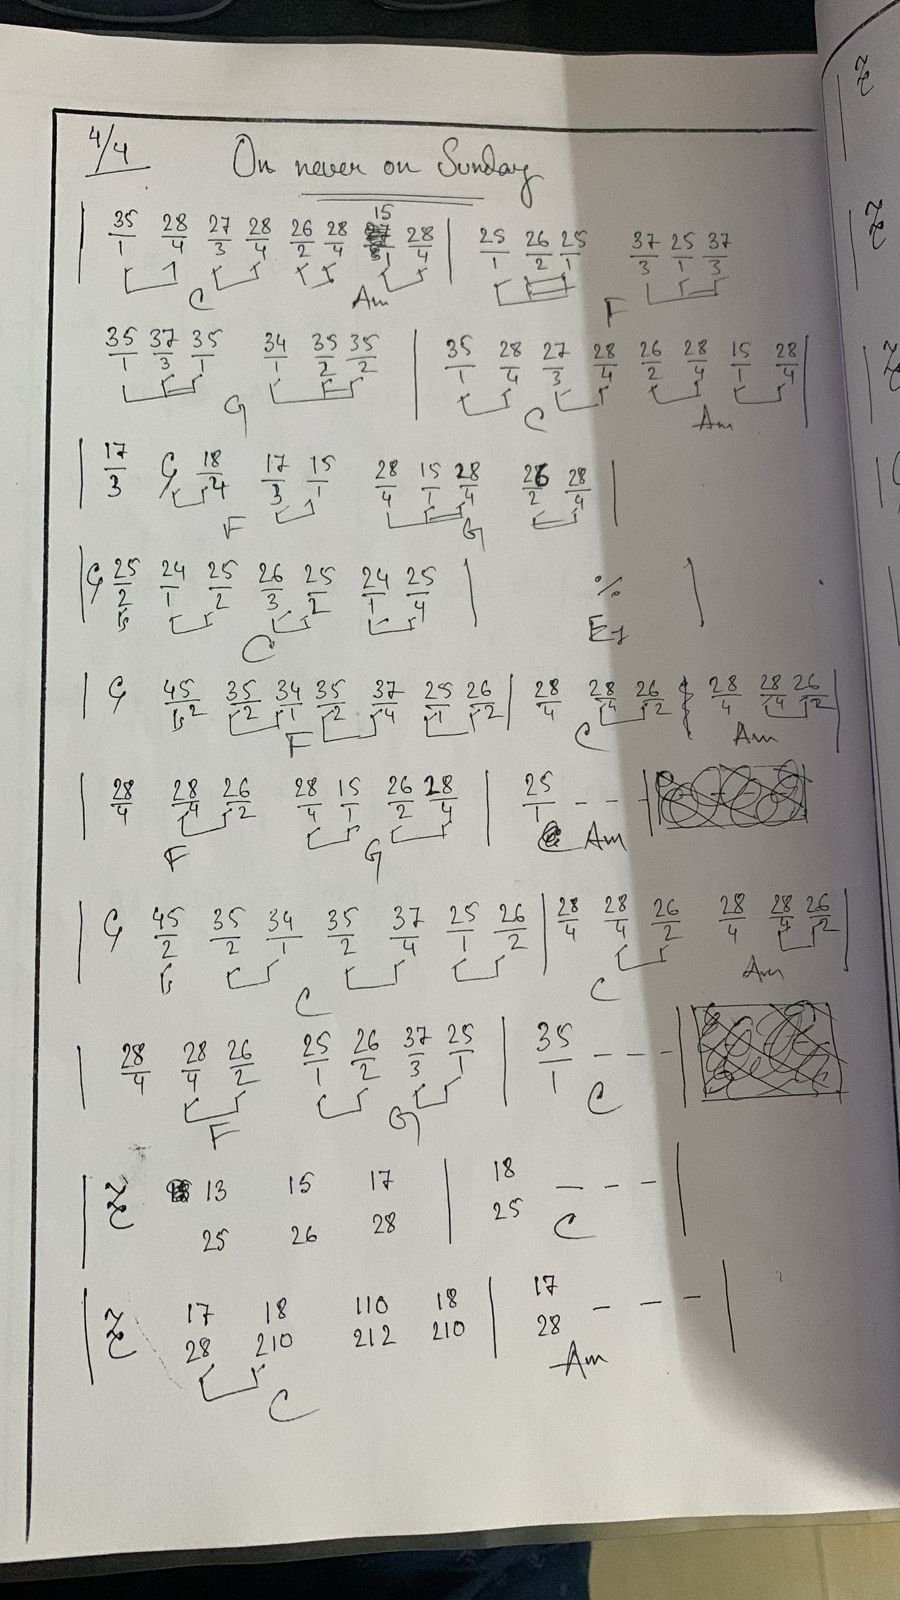 4/4 On never on Sunday
| 35/1 28/4 27/3 28/4 26/2 28/4 15/1 28/4 | 25/1 26/2 25/1 37/3 25/1 37/3
C Am F
35/1 37/3 35/1 34/1 35/2 35/2 | 35/1 28/4 27/3 28/4 26/2 28/4 15/1 28/4 |
G C Am
| 17/3 18/4 17/3 15/1 28/4 15/1 28/4 26/2 28/4 |
F G
| 25/2 24/1 25/2 26/3 25/2 24/1 25/4 | % |
C E7
| 45/2 35/2 34/1 35/2 37/4 25/1 26/2 | 28/4 28/4 26/2 28/4 28/4 26/2 |
F C Am
| 28/4 28/4 26/2 28/4 15/1 26/2 28/4 | 25/1 - - - |
F G Am
| 45/2 35/2 34/1 35/2 37/4 25/1 26/2 | 28/4 28/4 26/2 28/4 28/4 26/2 |
C C Am
| 28/4 28/4 26/2 25/1 26/2 37/3 25/1 | 35/1 - - - |
F G C
| 13 15 17 | 18 - - - |
25 26 28 25 C
| 17 18 110 18 | 17 - - - |
28 210 212 210 28
C Am